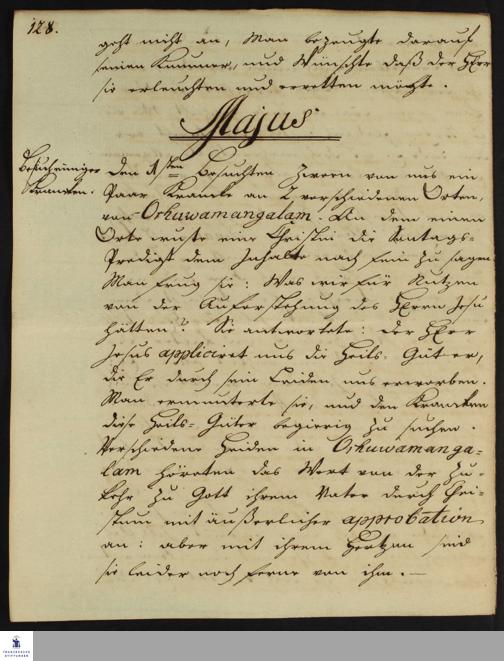 128.
geht nicht an, Man bezeugte darauf
seinen Kummer, und Wünschte daß der HErr
sie erleuchten und erretten möchte.
Majus
Besuch einiger
Krancken.
Den 1sten Besuchten Zween von uns ein
Paar Krancke an 2 verschiedenen Orten,
von Orhuwamangalam. An dem einen
Orte wuste eine Christin die Sontags-
Predigt dem Inhalte nach fein zu sagen
Man frug sie: Was wir für Nutzen
von der Auferstehung des HErrn Jesu
hätten? Sie antwortete: der HErr
Jesus appliciret uns die Heils-Güter,
die Er durch sein Leiden uns erworben.
Man ermunterte sie, und den Krancken
diese Heils-Güter begierig zu suchen.
Verschiedene Heiden in Orhuwamanga-
lam hörten das Wort von der Zu-
kehr zu Gott ihrem Vater durch Chri-
stum mit äußerlicher approbation
an: aber mit ihrem Hertzen sind
sie leider noch ferne von ihm.—
FRANCKESCHE
STIFTUNGEN